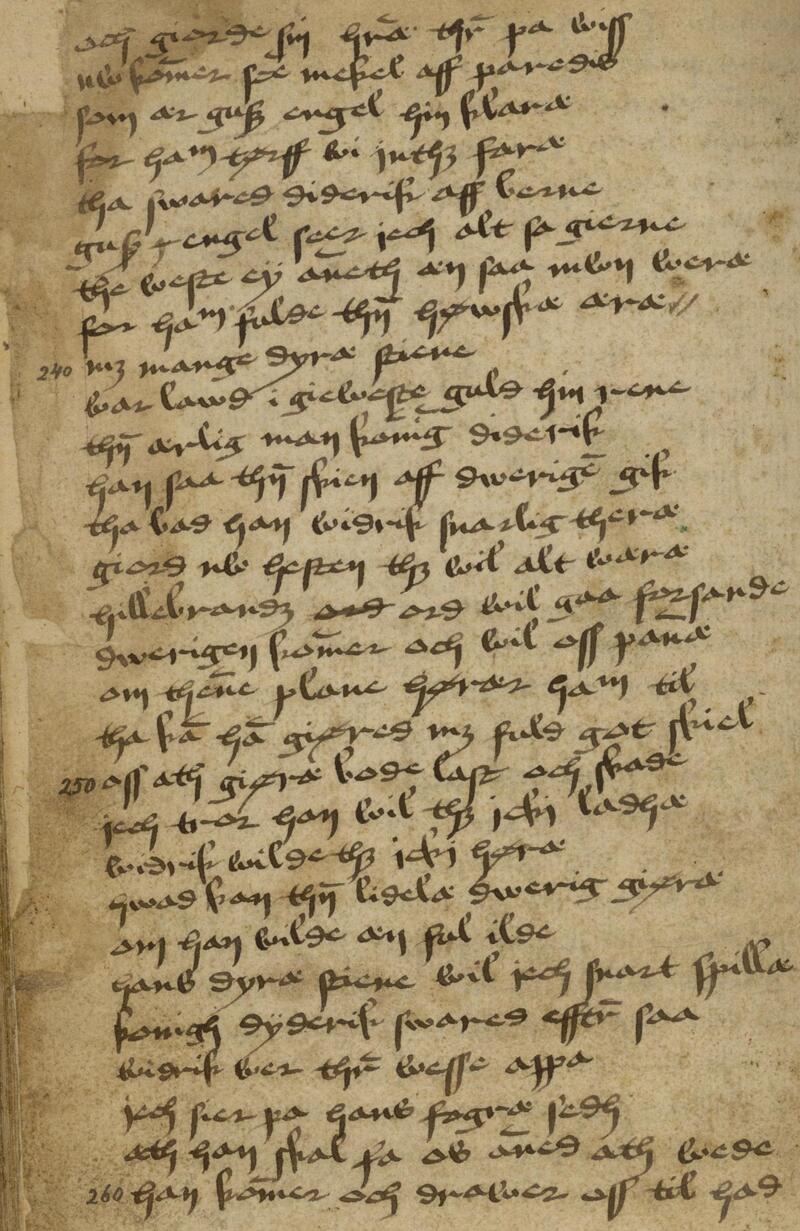 och giorde sin hr̄æ thr̄ pa wiss
nw kōmer scē mekel aff paredis
som ær guß engel hin klaræ
for ham tørff wi inthz faræ
tha swared diderik aff berne
guß engel seer jech alt sa gierne
the weste ey āneth æn saa mwn weræ
for ham fulde thn̄ høwskæ æræ //
240 mz mange dyræ stene
war lawd i gieweste guld hin rene
thn̄ ærlig man koni̅g diderik
han saa thn̄ skien aff dwerigē gik
tha bad han widrik snarlig theræ
giord nw hesten thz wil alt wæræ
hillebrandz ord ord wil gaa for sande
dwerigen kōmer och wil oss pānæ
om then̄e plane hører ham til
tha kā hā giøred mz fuld got skiel
250 oss ath giøræ bode last och skade
jech tror han wil thz icki ladhæ
widrik wilde thz icki høræ
hwad kan thn̄ lidelæ dwerig giøræ
om han wilde æn ful ilde
hans dyræ stiene wil jech snart spillæ
konigh dyderik swared efftr̄ saa
widrik wer thr̄ wesse appa
jech sier pa hans fagræ sedh
ath han skal fa os āned ath wede
260 han kōmer och drawer oss til had